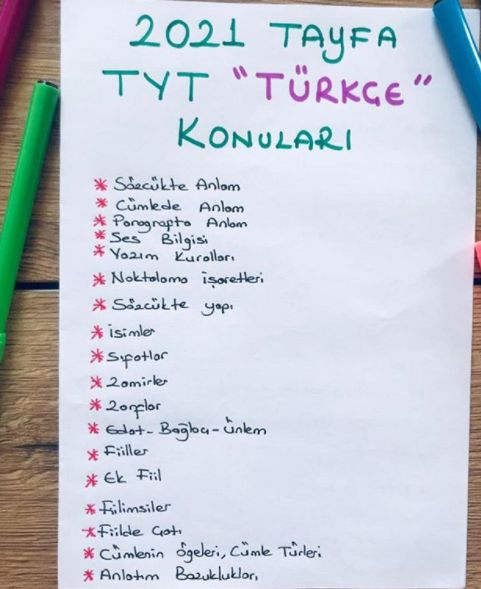 2021 TAYFA
TYT "TÜRKÇE"
KONULARI
* Sözcükte Anlam
* Cümlede Anlam
* Paragrafta Anlam
* Ses Bilgisi
* Yazım Kuralları
* Noktalama işaretleri
* Sözcükte yapı
* isimler
* Sıfatlar
* Zamirler
* Zarflar
* Edat-Bağlaç-Ünlem
* Fiiller
* Ek Fiil
* Fiilimsiler
* Fiilde Çatı
* Cümlenin Ögeleri, Cümle Türleri
* Anlatım Bozuklukları